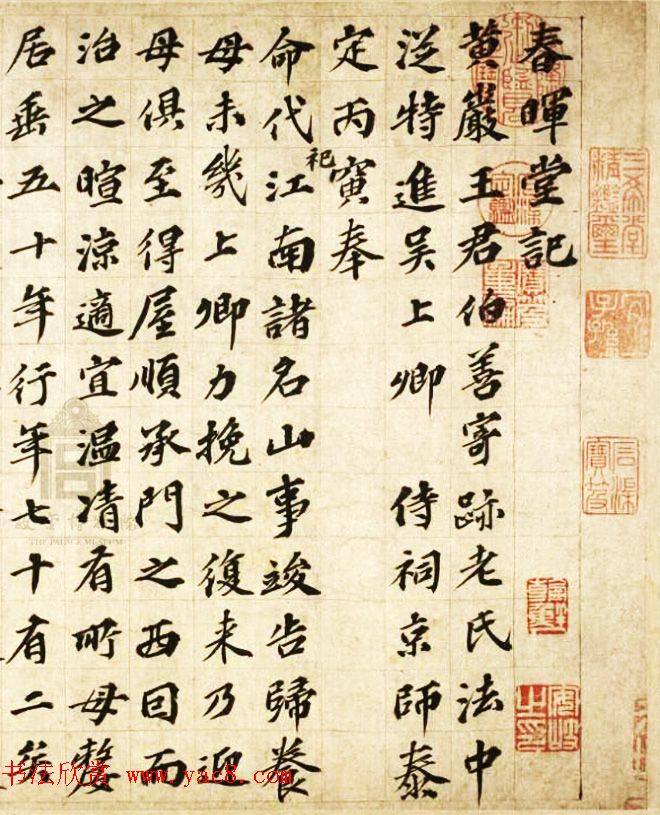 三希堂精鑑璽
宜子孫
石渠寶笈
春暉堂記
黄巖王君伯善寄跡老氏法中
従特進吴上卿 侍祠京師泰
定丙寅奉
命代祀江南諸名山事竣告歸養
母未幾上卿力挽之復来乃迎
母俱至得屋順承門之西因而
治之暄涼適宜温凊有所母嫠
居垂五十年行年七十有二矣
THE PALACE MUSEUM
书法欣赏 www.yac8.com